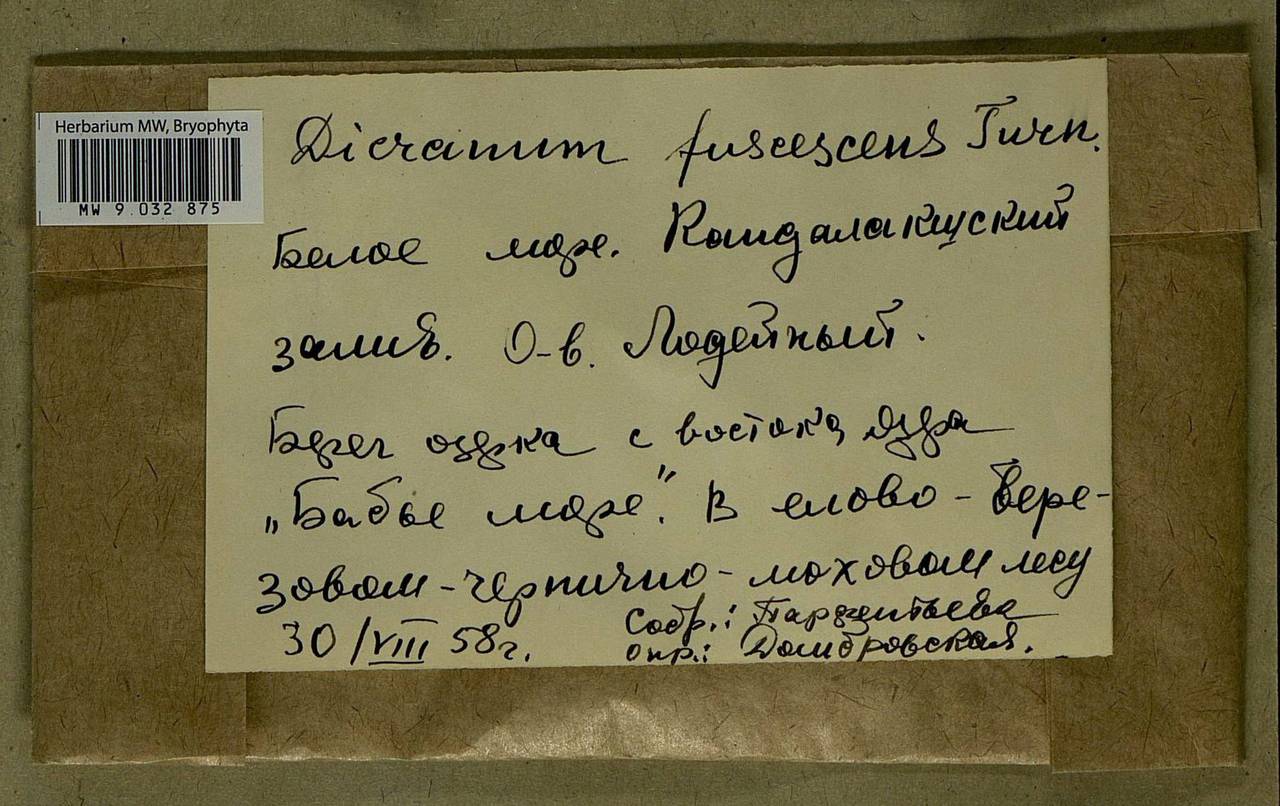 Herbarium MW, Bryophyta
MW 9 032 875
Dicranum fuscescens Turn.
Белое море. Кандалакшский
залив. О-в. Лодейный.
Берег озерка с востока озера
„Бабье море". В елово-бере-
зовом-чернично-моховом лесу
30/VIII 58г.
Собр.: Парфентьева
опр.: Домбровская.